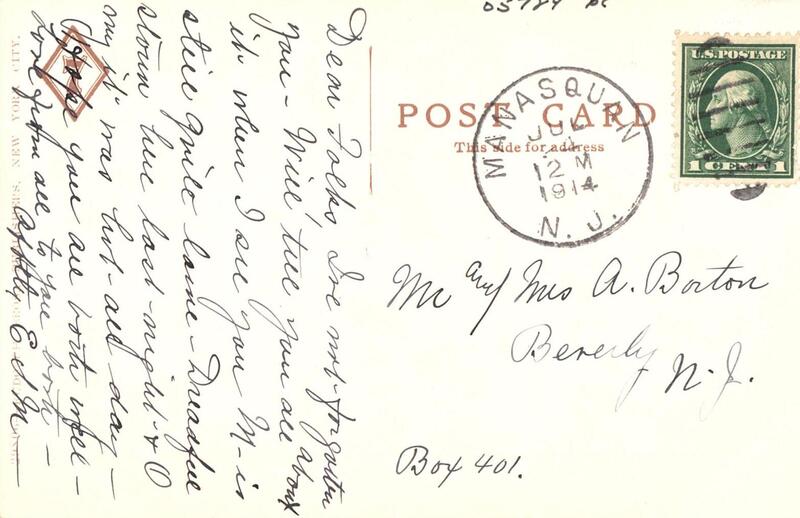 05784 pc
POST CARD
This side for address
MANASQUAN
JUL
12 M
1914
N. J.
U.S. POSTAGE
1 CENT 1
Mr and Mrs A. Borton
Beverly
N-J.
Box 401.
Dear Folks, I've not forgotten
you - Will tell you all about
it when I see you M- is
still quite lame - Dreadful
storm here last-night & O
my it was hot all day -
Hope you are both well -
Love from all to you both -
E d M
NEW YORK CITY.